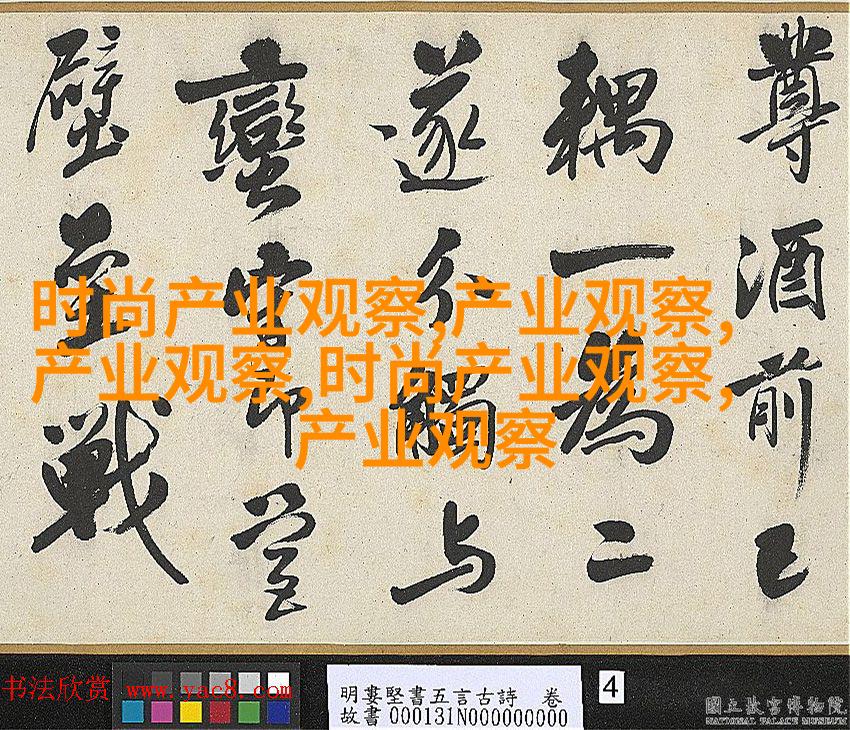 尊酒前已
耦一為二
遂分觸与
蠻
壁壘戰
时尚产业观察,产业观察,
产业观察,时尚产业观察,
产业观察
书法欣赏 www.yac8.com
明婁堅書五言古詩 卷
故書000131N000000000
4
國立故宮博物院
NATIONAL PALACE MUSEUM